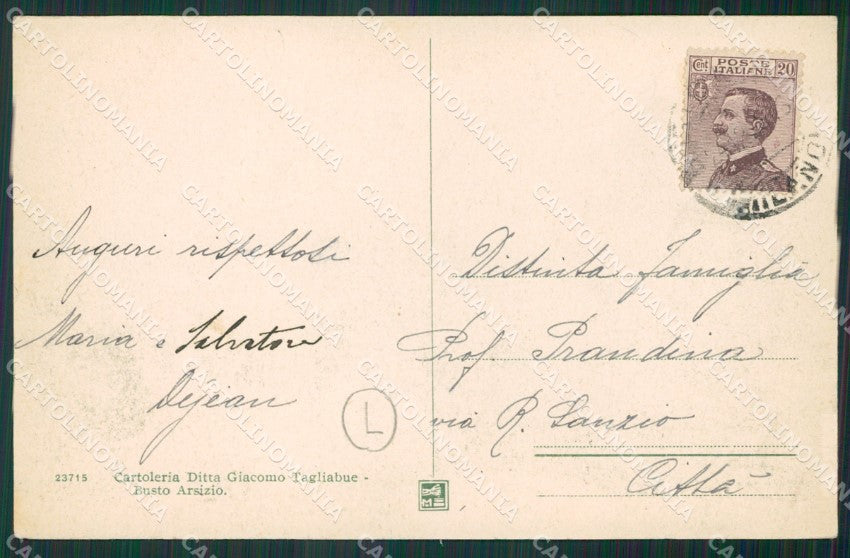 Cent 20
POSTE
ITALIANE
MILANO
Auguri rispettosi
Maria e Salvatore
Dejean
L
23715 Cartoleria Ditta Giacomo Tagliabue -
Busto Arsizio.
Distinta famiglia
Prof. Prandina
via R. Sanzio
Città
CARTOLINOMANIA